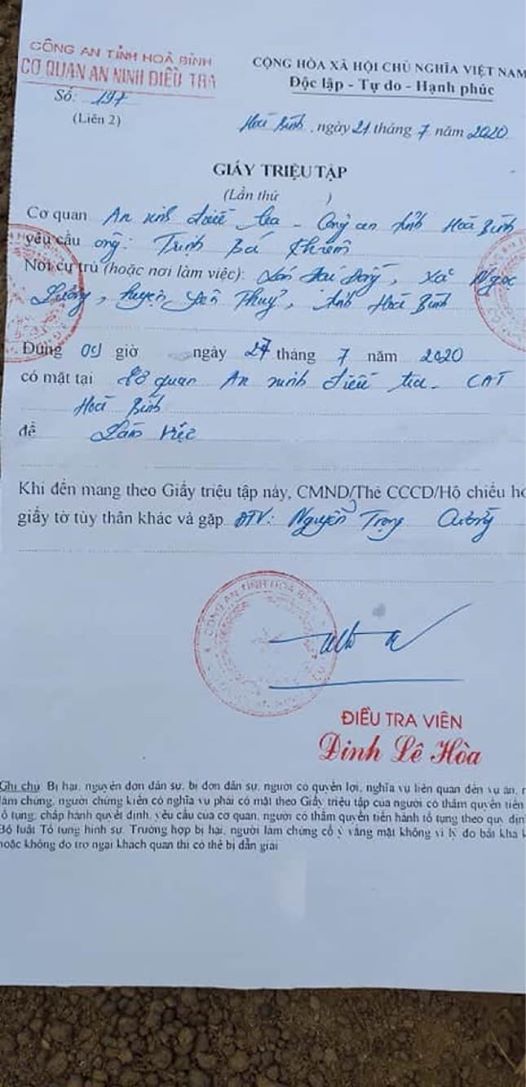 CÔNG AN TỈNH HOÀ BÌNH
CƠ QUAN AN NINH ĐIỀU TRA
Số: 197
(Liên 2)
CỘNG HÒA XÃ HỘI CHỦ NGHĨA VIỆT NAM
Độc lập - Tự do - Hạnh phúc
Hoà Bình, ngày 21 tháng 7 năm 2020
GIẤY TRIỆU TẬP
(Lần thứ )
Cơ quan An ninh điều tra - Công an tỉnh Hoà Bình
yêu cầu ông: Trịnh Bá Khiêm
Nơi cư trú (hoặc nơi làm việc): Đại Đồng, xã Ngọc
Lương, huyện Yên Thuỷ, tỉnh Hoà Bình
Đúng 09 giờ ngày 27 tháng 7 năm 2020
có mặt tại Cơ quan An ninh điều tra - CAT
Hoà Bình
để Làm việc
Khi đến mang theo Giấy triệu tập này, CMND/Thẻ CCCD/Hộ chiếu
giấy tờ tùy thân khác và gặp ĐTV: Nguyễn Trọng Cường
CÔNG AN TỈNH HOÀ BÌNH
ĐIỀU TRA VIÊN
Đinh Lê Hòa
Ghi chú: Bị hại, nguyên đơn dân sự, bị đơn dân sự, người có quyền lợi, nghĩa vụ liên quan đến vụ án,
làm chứng, người chứng kiến có nghĩa vụ phải có mặt theo Giấy triệu tập của người có thẩm quyền tiến
tố tụng; chấp hành quyết định, yêu cầu của cơ quan, người có thẩm quyền tiến hành tố tụng theo quy định
Bộ luật Tố tụng hình sự. Trường hợp bị hại, người làm chứng cố ý vắng mặt không vì lý do bất khả
hoặc không do trở ngại khách quan thì có thể bị dẫn giải